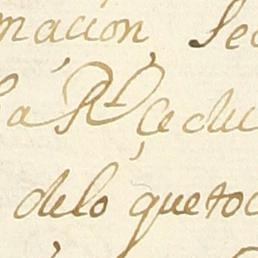 macion, Se
la Rl Cedu
delo que to